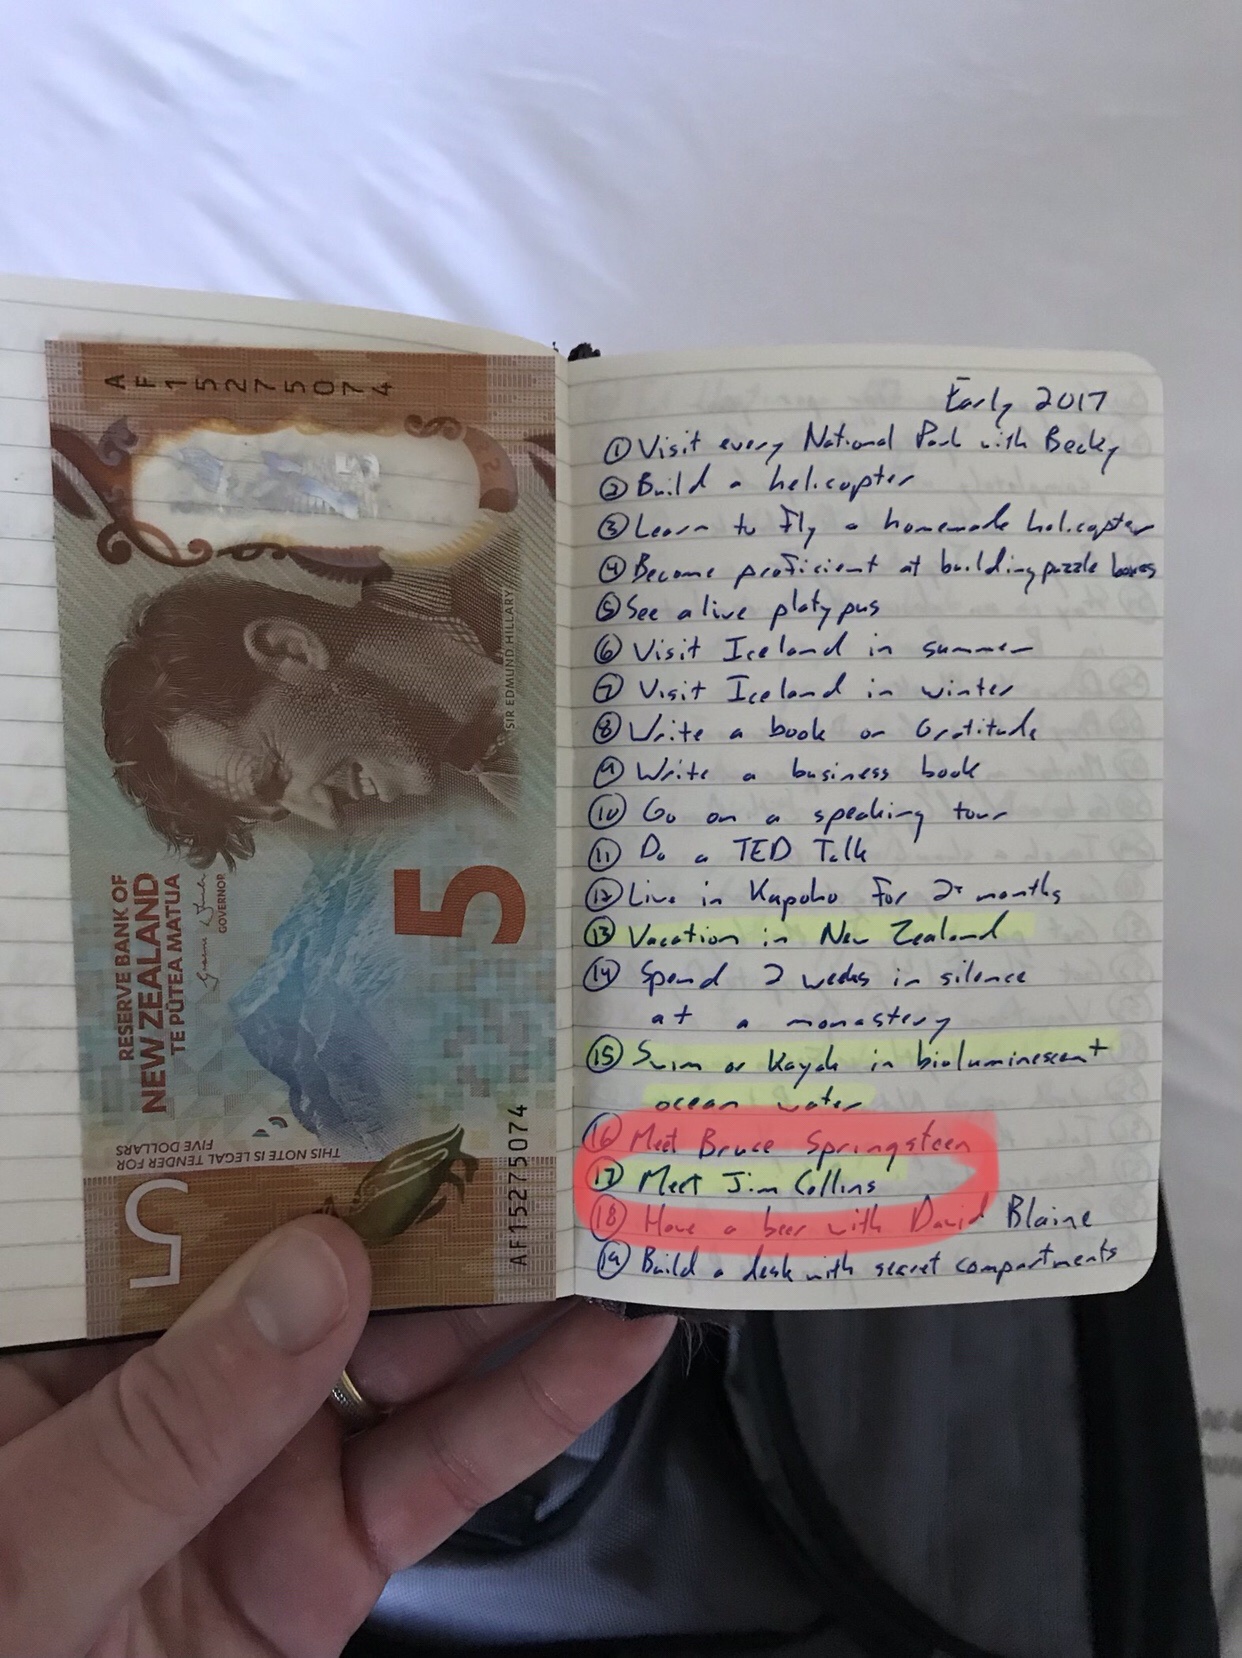 AF15275074
SIR EDMUND HILLARY
RESERVE BANK OF
NEW ZEALAND
TE PŪTEA MATUA
GOVERNOR
5
THIS NOTE IS LEGAL TENDER FOR
FIVE DOLLARS
5
AF15275074
Early 2017
① Visit every National Park with Becky
② Build a helicopter
③ Learn to fly a homemade helicopter
④ Become proficient at building puzzle boxes
⑤ See a live platypus
⑥ Visit Iceland in summer
⑦ Visit Iceland in winter
⑧ Write a book on Gratitude
⑨ Write a business book
⑩ Go on a speaking tour
⑪ Do a TED Talk
⑫ Live in Kapoho for 2+ months
⑬ Vacation in New Zealand
⑭ Spend 2 weeks in silence
at a monastery
⑮ Swim or Kayak in bioluminescent
ocean water
⑯ Meet Bruce Springsteen
⑰ Meet Jim Collins
⑱ Have a beer with David Blaine
⑲ Build a desk with secret compartments